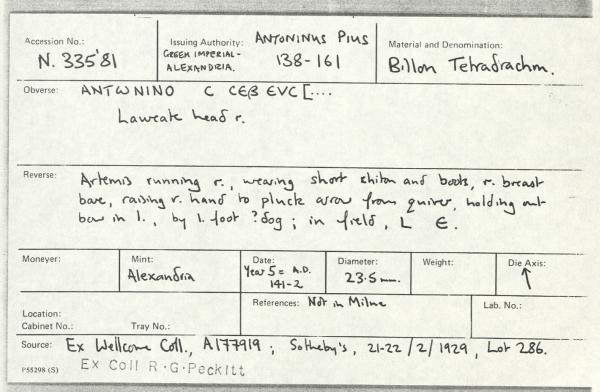 Accession No.: N. 335'81
Issuing Authority: ANTONINUS PIUS
GREEK IMPERIAL- 138-161
ALEXANDRIA.
Material and Denomination:
Billon Tetradrachm.
Obverse: ΑΝΤωΝΙΝΟ C CЄΒ ЄVC [....
Laureate head r.
Reverse: Artemis running r., wearing short chiton and boots, r. breast
bare, raising r. hand to pluck arrow from quiver, holding out
bow in l., by l. foot ?dog; in field, L Є.
Moneyer:
Mint:
Alexandria
Date:
Year 5 = A.D.
141-2
Diameter:
23.5 mm.
Weight:
Die Axis:
↑
Location:
Cabinet No.: Tray No.:
References: Not in Milne
Lab. No.:
Source: Ex Wellcome Coll., A177919; Sotheby's, 21-22/2/1929, Lot 286.
P55298 (S) Ex Coll R.G.Peckitt